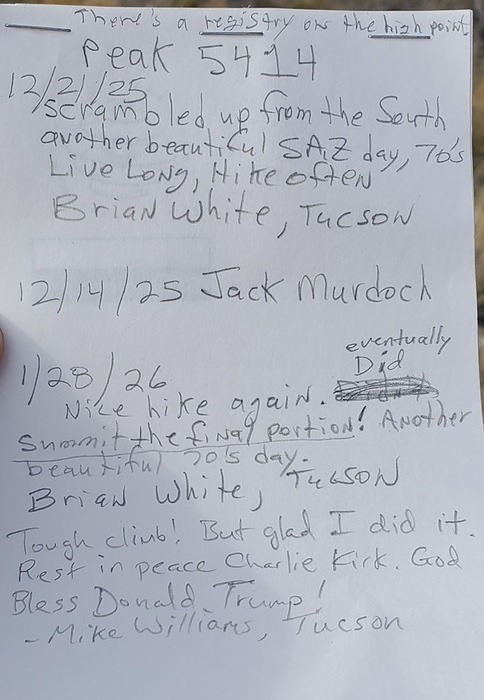 There's a registry on the high point
Peak 5414
12/21/25
Scrambled up from the South
another beautiful SAZ day, 70's
Live Long, Hike often
Brian White, Tucson
12/14/25 Jack Murdoch
eventually
1/28/26 Did
Nice hike again.
Summit the final portion! Another
beautiful 70's day.
Brian White, Tucson
Tough climb! But glad I did it.
Rest in peace Charlie Kirk. God
Bless Donald Trump!
- Mike Williams, Tucson